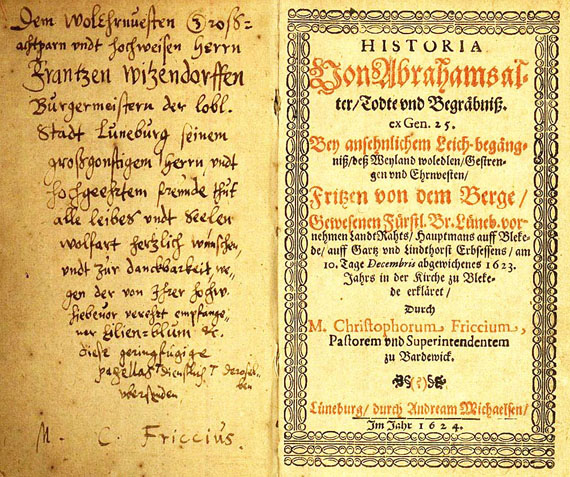 Dem Wolehrnvesten Groß=
achtparn vndt hochweisen Herrn
Frantzen Witzendorffen
Burgermeistern der lobl.
Stadt Luneburg seinem
großgonstigem Herrn vndt
hochgeehrtem freunde thut
alle leibes vndt Seelen
wolfart hertzlich wünschen,
vndt zur danckbarkeit we=
gen der von Ihrer hochw.
verehrt empfange=
ner Lilien=blum &c.
diese geringfügige
pagellas dienstlich derosel=
ben
vbersenden
M. C. Friccius.
HISTORIA
Von Abrahams al=
ter/ Todte vnd Begräbniß.
ex Gen. 25.
Bey ansehnlichem Leich-begäng=
niß/ deß Weyland woledlen/ Gestren=
gen vnd Ehrnvesten/
Fritzen von dem Berge/
Gewesenen Fürstl. Br. Lüneb. vor=
nehmen LandtRahts/ Hauptmans auff Bleke=
de/ auff Gartz vnd Lindthorst Erbsessens/ am
10. Tage Decembris abgewichenes 1623.
Jahrs in der Kirche zu Bleke=
de erkläret/
Durch
M. Christophorum Friccium,
Pastorem vnd Superintendentem
zu Bardewick.
Lüneburg/ durch Andream Michaelsen/
Im Jahr 1624.